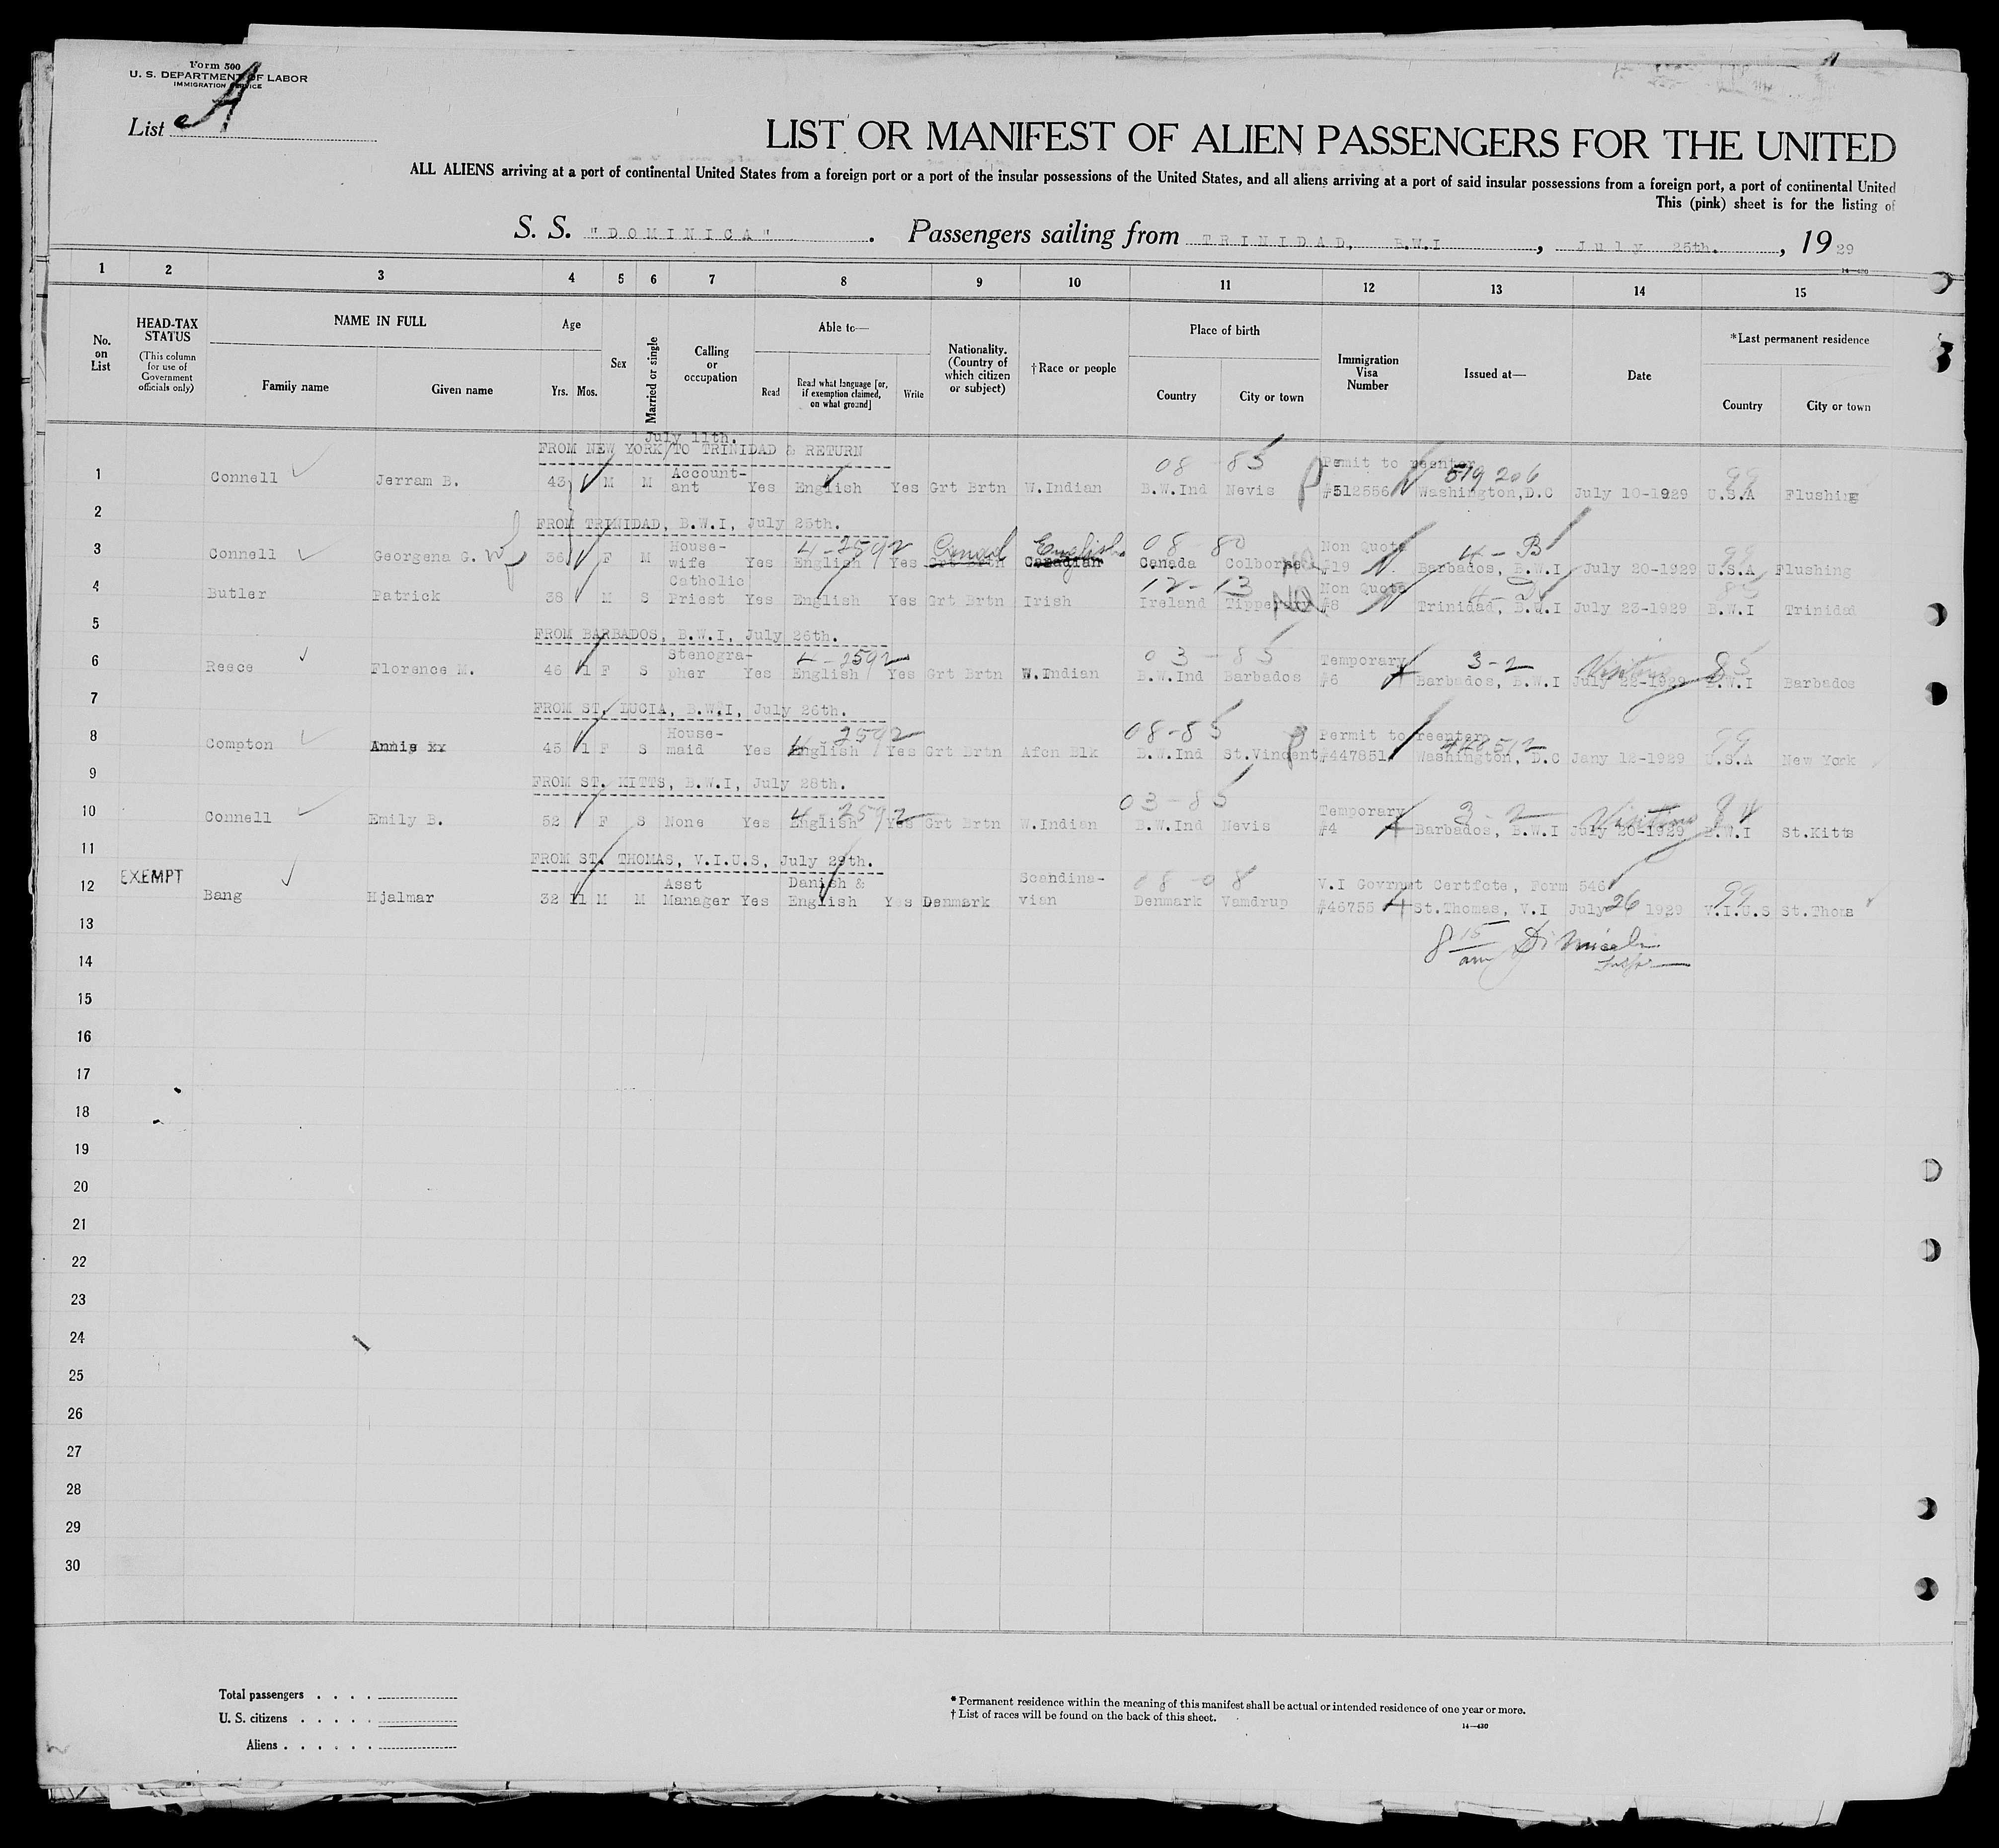 Form 500
U. S. DEPARTMENT OF LABOR
IMMIGRATION SERVICE
List A
LIST OR MANIFEST OF ALIEN PASSENGERS FOR THE UNITED
ALL ALIENS arriving at a port of continental United States from a foreign port or a port of the insular possessions of the United States, and all aliens arriving at a port of said insular possessions from a foreign port, a port of continental United
This (pink) sheet is for the listing of
S. S. "DOMINICA" . Passengers sailing from TRINIDAD, B.W.I , July 25th. , 19 29
14—430
1 2 3 4 5 6 7 8 9 10 11 12 13 14 15
No. on List
HEAD-TAX STATUS (This column for use of Government officials only)
NAME IN FULL
Family name Given name
Age
Yrs. Mos.
Sex
Married or single
Calling or occupation
Able to—
Read Read what language [or, if exemption claimed, on what ground] Write
Nationality. (Country of which citizen or subject)
†Race or people
Place of birth
Country City or town
Immigration Visa Number
Issued at—
Date
*Last permanent residence
Country City or town
July 11th.
FROM NEW YORK/TO TRINIDAD & RETURN
08 - 85 Permit to reenter 519206 99
1 Connell Jerram B. 43 M M Account-ant Yes English Yes Grt Brtn W.Indian B.W.Ind Nevis #512556 Washington,D.C July 10-1929 U.S.A Flushing
2 FROM TRINIDAD, B.W.I, July 25th.
4-2592 Canad English 08 - 80 Non Quota 4 - B
3 Connell Georgena G. 36 F M House-wife Yes English Yes Grt Brtn Canadian Canada Colborne #19 Barbados, B.W.I July 20-1929 U.S.A Flushing
12 - 13 NQ Non Quota 85
4 Butler Patrick 38 M S Catholic Priest Yes English Yes Grt Brtn Irish Ireland Tipperary #8 Trinidad, B.W.I July 23-1929 B.W.I Trinidad
5 FROM BARBADOS, B.W.I, July 26th.
4-2592 03 - 85 Temporary 3-2 Visiting 85
6 Reece Florence M. 46 1 F S Stenogra-pher Yes English Yes Grt Brtn W.Indian B.W.Ind Barbados #6 Barbados, B.W.I July 22-1929 B.W.I Barbados
7 FROM ST. LUCIA, B.W.I, July 26th.
4 2592 08-85 Permit to reenter 99
8 Compton Annie xx 45 1 F S House-maid Yes English Yes Grt Brtn Afcn Blk B.W.Ind St.Vincent #447851 Washington, D.C Jany 12-1929 U.S.A New York
9 FROM ST. KITTS, B.W.I, July 28th.
4-2592 03-85 Temporary 3-2 Visiting 84
10 Connell Emily B. 52 F S None Yes English Yes Grt Brtn W.Indian B.W.Ind Nevis #4 Barbados, B.W.I July 20-1929 B.W.I St.Kitts
11 FROM ST. THOMAS, V.I.U.S, July 29th.
EXEMPT 08-08 V.I Govrnmt Certfcte, Form 546 99
12 Bang Hjalmar 32 11 M M Asst Manager Yes Danish & English Yes Denmark Scandina-vian Denmark Vamdrup #46755 St.Thomas, V.I July 26 1929 V.I.U.S St.Thoms
13 8 15 am
14
15
16
17
18
19
20
21
22
23
24
25
26
27
28
29
30
Total passengers . . . .
U. S. citizens . . . . .
Aliens . . . . . .
* Permanent residence within the meaning of this manifest shall be actual or intended residence of one year or more.
† List of races will be found on the back of this sheet.
14—430